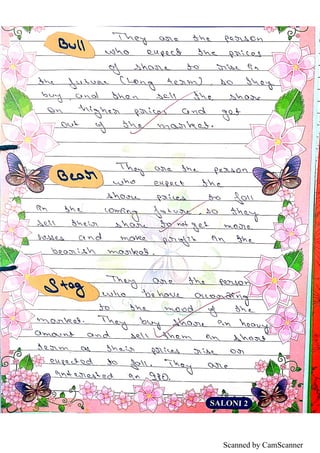 Bull
They are the person
who expect the prices
of share to rise in
the future (Long term), so they
buy and then sell the share
on higher prices and get
out of the market.
Bear
They are the person
who expect the
share prices to fall
in the coming future, so they
sell their share to not get more
losses and make profit in the
bearish market.
Stag
They are the person
who behave according
to the mood of the
market. They buy share in heavy
amount and sell them in short
term as their prices rise or
expected to fall. They are
interested in IPO.
SALONI 2
Scanned by CamScanner